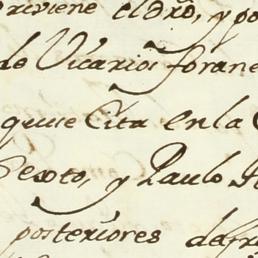 reviene el dro, y po
de Vicarios forane
que se Cita en la
Sexto, y Paulo
posteriores de